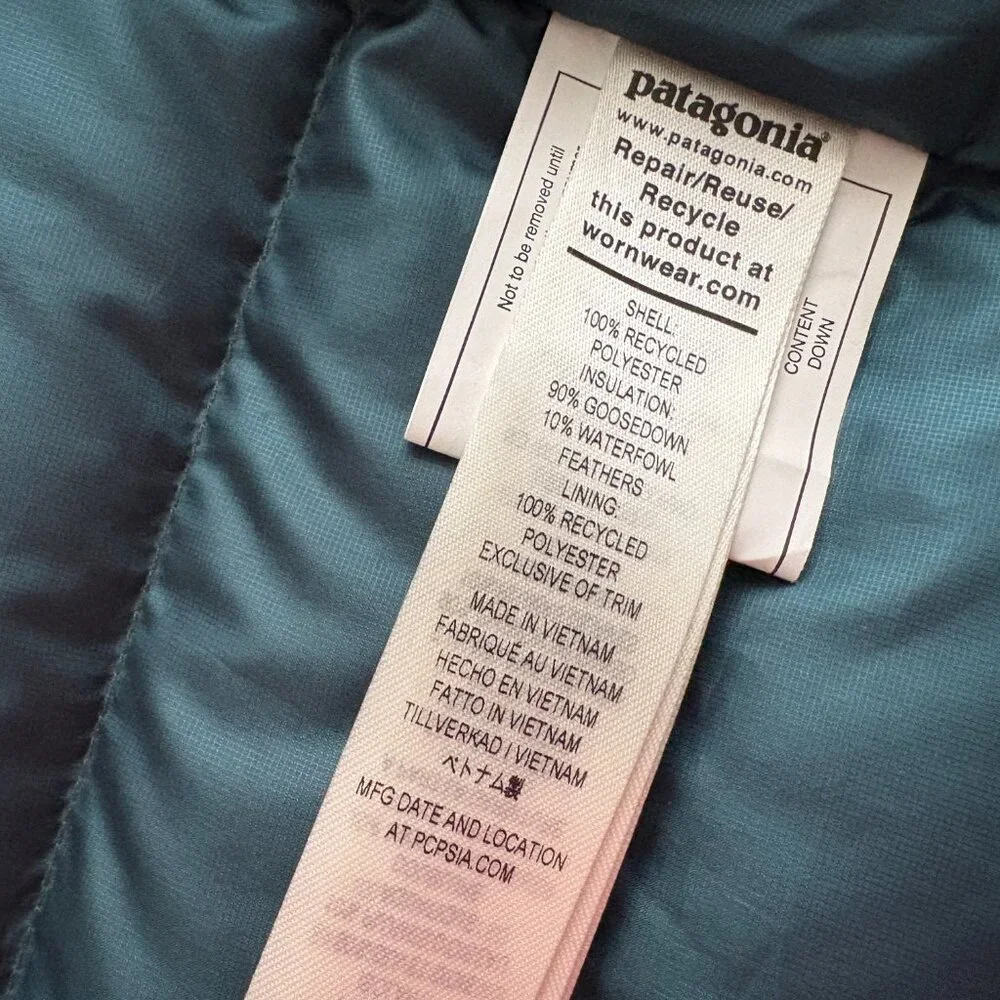 patagonia®
www.patagonia.com
Repair/Reuse/
Recycle
this product at
wornwear.com
SHELL:
100% RECYCLED
POLYESTER
INSULATION:
90% GOOSEDOWN
10% WATERFOWL
FEATHERS
LINING:
100% RECYCLED
POLYESTER
EXCLUSIVE OF TRIM
MADE IN VIETNAM
FABRIQUÉ AU VIETNAM
HECHO EN VIETNAM
FATTO IN VIETNAM
TILLVERKAD I VIETNAM
ベトナム製
MFG DATE AND LOCATION
AT PCPSIA.COM
Not to be removed until
CONTENT
DOWN